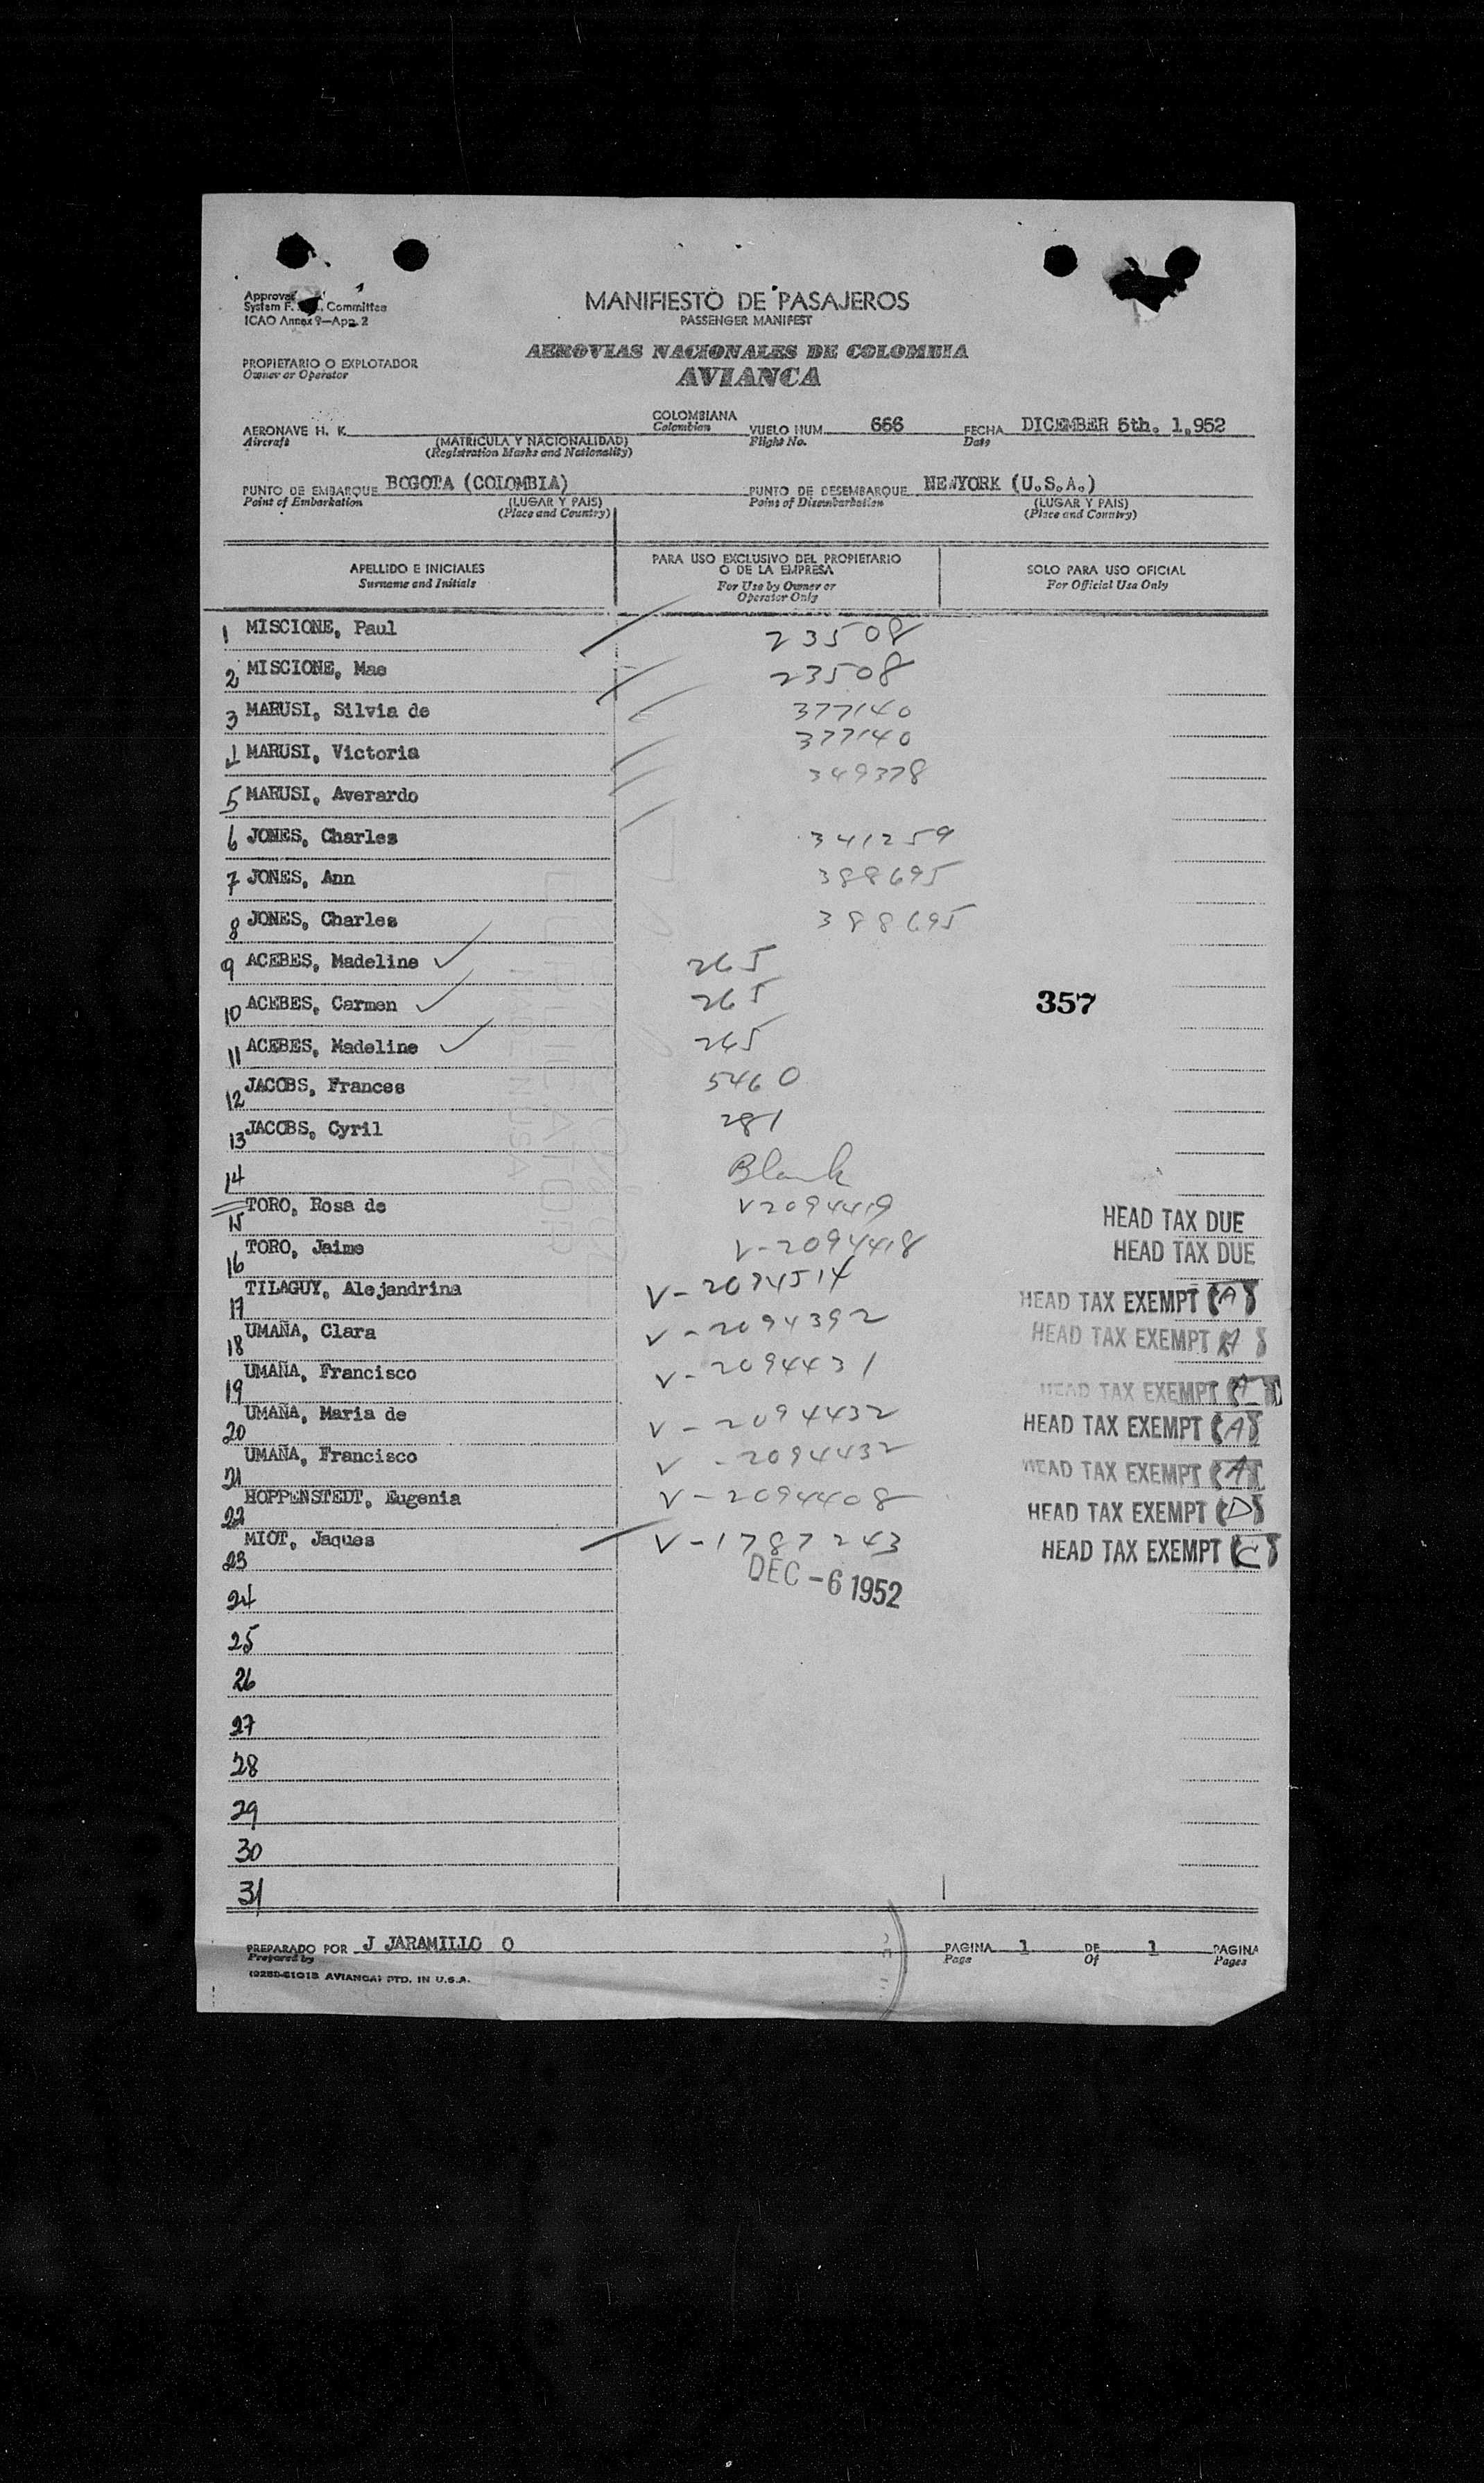 Approved
System F. Committee
ICAO Annex 9—App. 2
MANIFIESTO DE PASAJEROS
PASSENGER MANIFEST
AEROVIAS NACIONALES DE COLOMBIA
AVIANCA
PROPIETARIO O EXPLOTADOR
Owner or Operator
AERONAVE H. K. COLOMBIANA VUELO NUM. 666 FECHA DICEMBER 5th. 1.952
Aircraft (MATRICULA Y NACIONALIDAD) Colombian Flight No. Date
(Registration Marks and Nationality)
PUNTO DE EMBARQUE BOGOTA (COLOMBIA) PUNTO DE DESEMBARQUE NEWYORK (U.S.A.)
Point of Embarkation (LUGAR Y PAIS) Point of Disembarkation (LUGAR Y PAIS)
(Place and Country) (Place and Country)
APELLIDO E INICIALES PARA USO EXCLUSIVO DEL PROPIETARIO O DE LA EMPRESA SOLO PARA USO OFICIAL
Surname and Initials For Use by Owner or Operator Only For Official Use Only
1 MISCIONE, Paul 23508
2 MISCIONE, Mae 23508
3 MARUSI, Silvia de 377140
4 MARUSI, Victoria 377140
5 MARUSI, Averardo 349378
6 JONES, Charles 341259
7 JONES, Ann 388695
8 JONES, Charles 388695
9 ACEBES, Madeline 265
10 ACEBES, Carmen 265 357
11 ACEBES, Madeline 265
12 JACOBS, Frances 5460
13 JACOBS, Cyril 281
14 Blank
15 TORO, Rosa de V-2094419 HEAD TAX DUE
16 TORO, Jaime V-2094418 HEAD TAX DUE
17 TILAGUY, Alejandrina V-2094514 HEAD TAX EXEMPT (A)
18 UMAÑA, Clara V-2094392 HEAD TAX EXEMPT (A)
19 UMAÑA, Francisco V-2094431 HEAD TAX EXEMPT (A)
20 UMAÑA, Maria de V-2094432 HEAD TAX EXEMPT (A)
21 UMAÑA, Francisco V-2094432 HEAD TAX EXEMPT (A)
22 HOPPENSTEDT, Eugenia V-2094408 HEAD TAX EXEMPT (D)
23 MIOT, Jaques V-1787243 HEAD TAX EXEMPT (C)
DEC -6 1952
24
25
26
27
28
29
30
31
PREPARADO POR J JARAMILLO O PAGINA 1 DE 1 PAGINA
Prepared by Page Of Pages
AVIANCA) PTD. IN U.S.A.